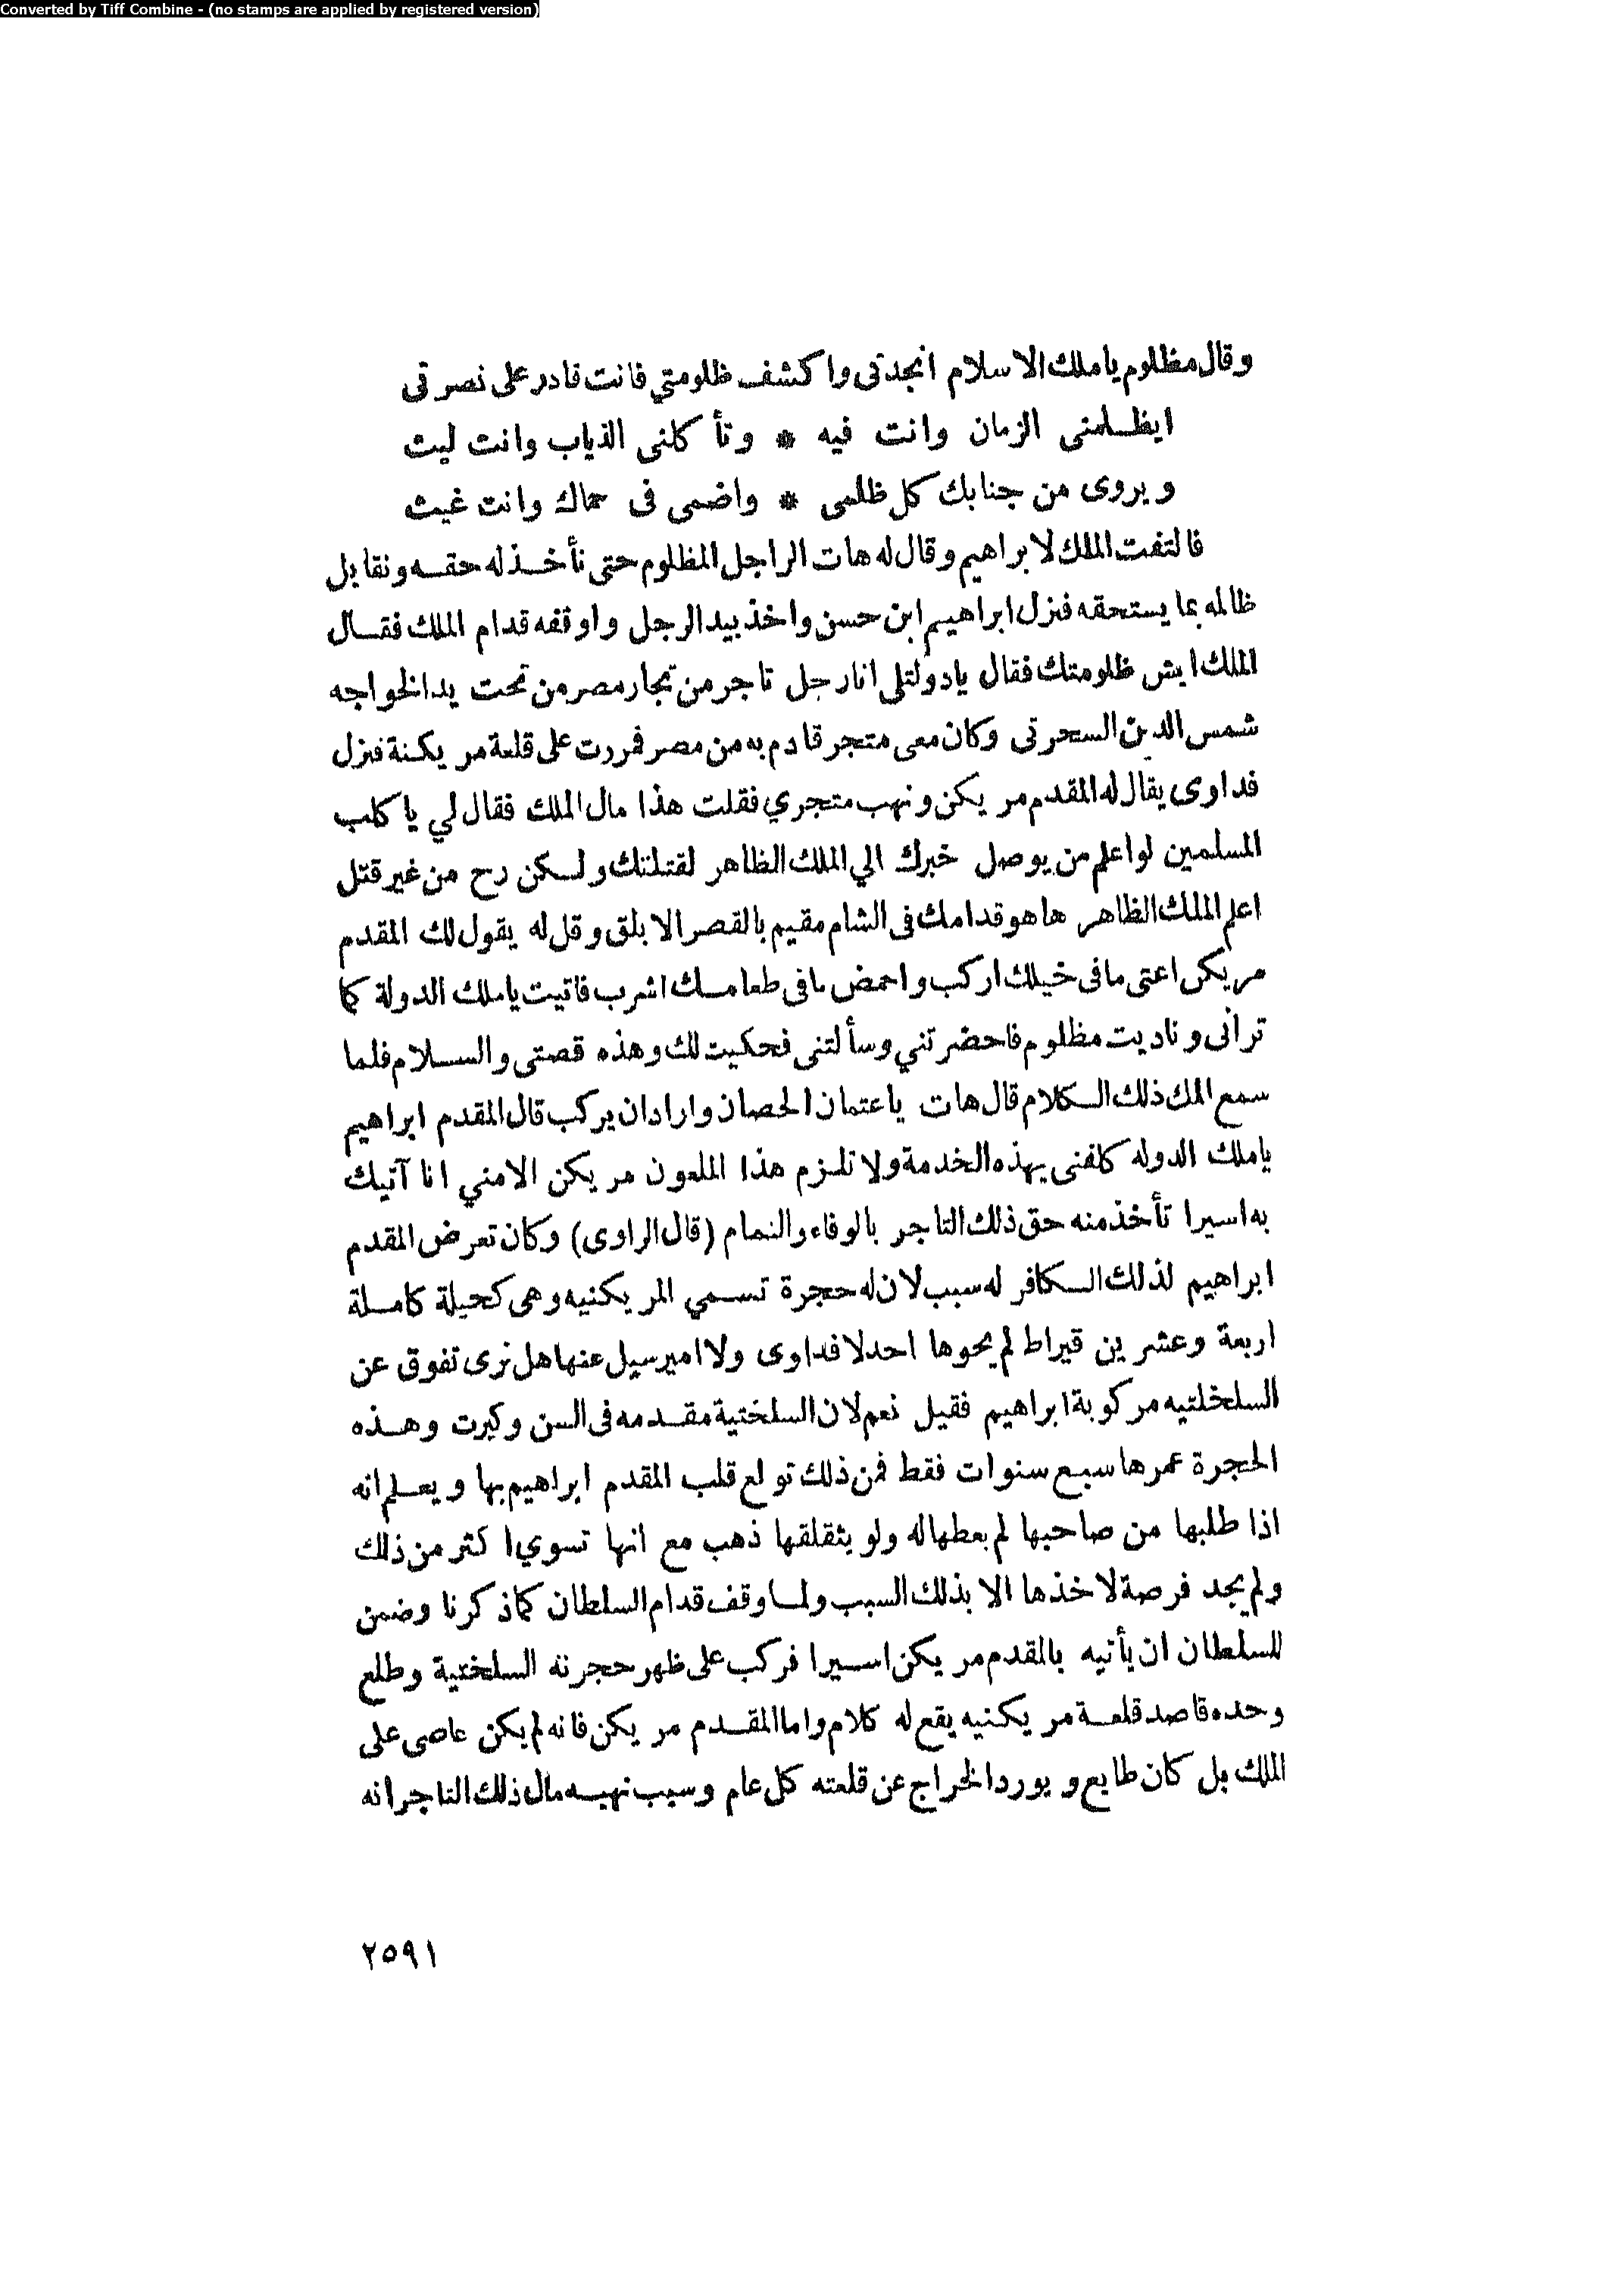 Converted by Tiff Combine - (no stamps are applied by registered version)
وقال مظلوم ياملك الاسلام انجدتى واكشف ظلومتي فانت قادر على نصرتى
ايظلمنى الزمان وانت فيه * وتأكلنى الذياب وانت ليث
ويروى من جنابك كل ظلمى * واضمى فى حماك وانت غيث
فالتفت الملك لابراهيم وقال له هات الراجل المظلوم حتى نأخذله حقه ونقابل
ظالمه بما يستحقه فنزل ابراهيم ابن حسن واخذ بيد الرجل واوقفه قدام الملك فقال
الملك ايش ظلومتك فقال يادولتلى انا رجل تاجر من تجار مصر من تحت يد الخواجه
شمس الدين السحرتى وكان معى متجر قادم به من مصر فمررت على قلعة مريكنة فنزل
فداوى يقال له المقدم مريكن ونهب متجري فقلت هذا مال الملك فقال لي ياكلب
المسلمين لواعلم من يوصل خبرك الي الملك الظاهر لقتلتك ولكن رح من غير قتل
اعلم الملك الظاهر هاهو قدامك فى الشام مقيم بالقصر الابلق وقل له يقول لك المقدم
مريكن اعتى مافى خيلك اركب واحمض مافى طعامك اشرب فاتيت ياملك الدولة كما
ترانى وناديت مظلوم فاحضرتني وسألتنى فحكيت لك وهذه قصتى والسلام فلما
سمع الملك ذلك الكلام قال هات ياعتمان الحصان واراد ان يركب قال المقدم ابراهيم
ياملك الدوله كلفنى بهذه الخدمة ولا تلزم هذا الملعون مريكن الامني انا آتيك
به اسيرا تأخذ منه حق ذلك التاجر بالوفاء والتمام (قال الراوى) وكان تعرض المقدم
ابراهيم لذلك الكافر له سبب لان له حجرة تسمي المريكنيه وهى كحيلة كاملة
اربعة وعشرين قيراط لم يحوها احد لا فداوى ولا امير سيل عنها هل نرى تفوق عن
السلخلتيه مركوبة ابراهيم فقيل نعم لان السلختية مقدمه فى السن وكبرت وهذه
الحجرة عمرها سبع سنوات فقط فمن ذلك تولع قلب المقدم ابراهيم بها ويعلم انه
اذا طلبها من صاحبها لم بعطهاله ولو يثقلقها ذهب مع انها تسوي اكثر من ذلك
ولم يجد فرصة لاخذها الا بذلك السبب ولما وقف قدام السلطان كماذكرنا وضمن
للسلطان ان يأتيه بالمقدم مريكن اسيرا فركب على ظهر حجرته السلختية وطلع
وحده قاصد قلعة مريكنيه يقع له كلام واما المقدم مريكن فانه لم يكن عاصى على
الملك بل كان طايع ويورد الخراج عن قلعته كل عام وسبب نهبه مال ذلك التاجر انه
٢٥٩١